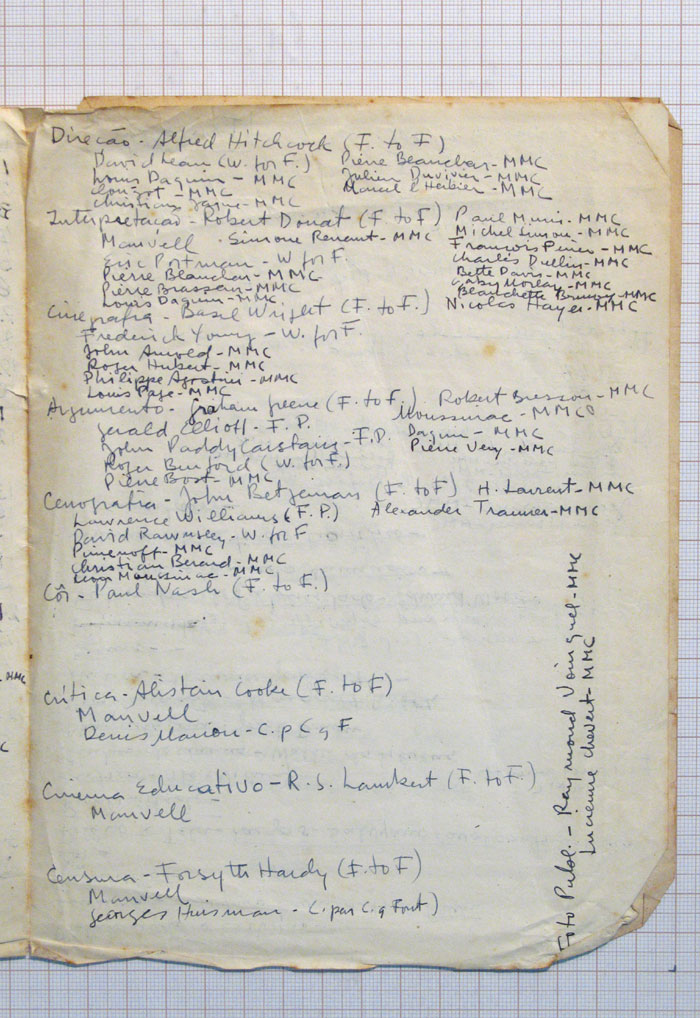 Direção - Alfred Hitchcock (F. to F)
David Lean (W. for F.)
Louis Daquin - MMC
Clouzot - MMC
Christian Jaque - MMC
Pierre Blanchar - MMC
Julien Duvivier - MMC
Marcel L'Herbier - MMC
Interpretação - Robert Donat (F. to F)
Manvell - Simone Renant - MMC
Eric Portman - W for F.
Pierre Blanchar - MMC
Pierre Brasseur - MMC
Louis Daquin - MMC
Paul Muni - MMC
Michel Simon - MMC
François Périer - MMC
Charles Dullin - MMC
Bette Davis - MMC
Gaby Morlay - MMC
Blanchette Brunoy - MMC
Nicolas Hayer - MMC
Cinegrafia - Basil Wright (F. to F.)
Frederick Young - W. for F.
John Arnold - MMC
Roger Hubert - MMC
Philippe Agostini - MMC
Louis Page - MMC
Argumento - Graham Greene (F. to F.)
Gerald Elliott - F.P.
John Paddy Carstairs - F.P.
Roger Burford (W. for F.)
Pierre Bost - MMC
Robert Bresson - MMC
Moussinac - MMC
Daquin - MMC
Pierre Very - MMC
Cenografia - John Betjeman (F. to F)
Lawrence Williams (F.P.)
David Rawnsley - W. for F
Pimenoff - MMC
Christian Berard - MMC
Leon Moussinac - MMC
H. Laurent - MMC
Alexander Trauner - MMC
Côr - Paul Nash (F. to F.)
Crítica - Alistair Cooke (F. to F)
Manvell
Denis Marion - C. p C q F
Cinema Educativo - R. S. Lambert (F. to F.)
Manvell
Censura - Forsyth Hardy (F. to F)
Manvell
Georges Huisman - C. par C. q Font)
Foto Publ. - Raymond Voinquel - MMC
Lucienne Chevert - MMC